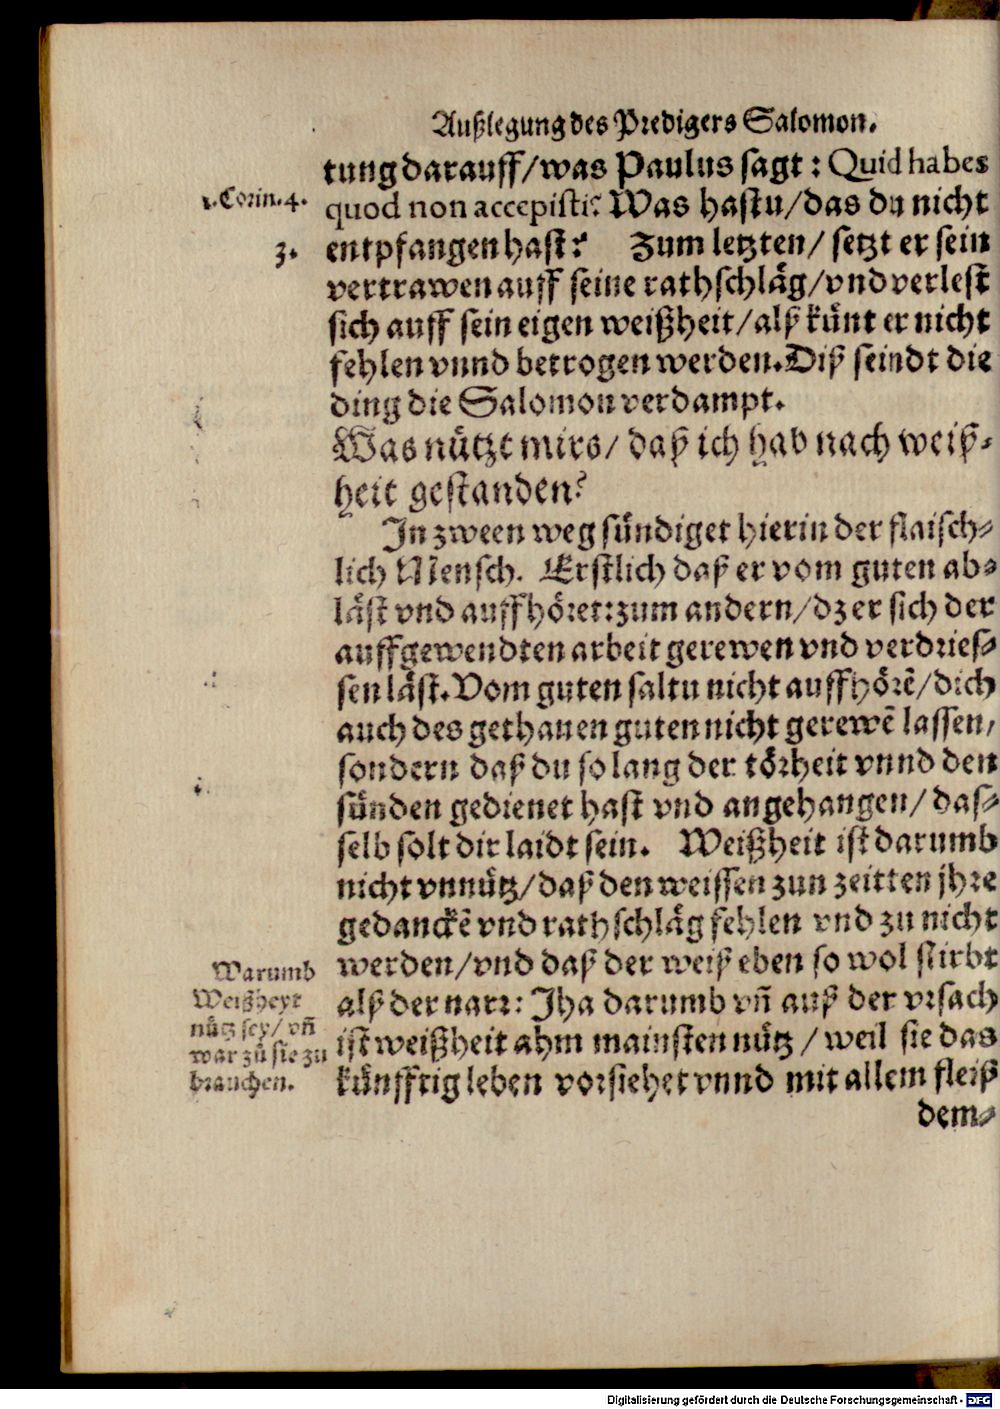 Außlegung des Predigers Salomon.
tung darauff/was Paulus sagt: Quid habes
1.Corin.4.
quod non accepisti? Was hastu/das du nicht
3.
entpfangen hast? Zum letzten/ setzt er sein
vertrawen auff seine rathschläg/vnd verlest
sich auff sein eigen weißheit/alß künt er nicht
fehlen vnnd betrogen werden. Diß seindt die
ding die Salomon verdampt.
Was nützt mirs/ daß ich hab nach weiß-
heit gestanden?
In zween weg sündiget hierin der flaisch-
lich Mensch. Erstlich daß er vom guten ab-
läst vnd auffhöret: zum andern/dz er sich der
auffgewendten arbeit gerewen vnd verdries-
sen läst. Vom guten saltu nicht auffhörẽ/dich
auch des gethanen guten nicht gerewẽ lassen/
sondern daß du so lang der törheit vnnd den
sünden gedienet hast vnd angehangen/das-
selb solt dir laidt sein. Weißheit ist darumb
nicht vnnütz/daß den weissen zun zeitten jhre
gedanckẽ vnd rathschläg fehlen vnd zu nicht
werden/vnd daß der weiß eben so wol stirbt
alß der narr: Jha darumb vñ auß der vrsach
ist weißheit ahm mainsten nütz / weil sie das
künfftig leben vorsiehet vnnd mit allem fleiß
dem-
Warumb
Weißheyt
nütz sey/ vñ
war zů sie zu
brauchen.
Digitalisierung gefördert durch die Deutsche Forschungsgemeinschaft - DFG